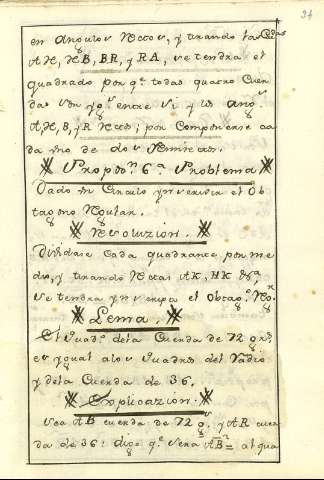 34
en angulos rectos, y tirando las Cdas
AH, HB, BR, y RA, se tendra el
quadrado por q.e todas quatro Cuer
das son yg.s entre si y los ang.s
A, H, B, y R rectos; por Componerse ca
da uno de dos semirectos.
Propos.n 6.a Problema
Dado un Circulo ynscrivir el Oc
tagono Regular.
Resoluzion.
Dividase cada quadrante por me
dio, y tirando rectas AK, HK &.a
se tendra ynscripto el Octag.o Reg.r
Lema.
El Quad.o dela Cuerda de 72 gr.s
es ygual alos Quadr.s del Radio
y dela Cuerda de 36.
Explicazion.
Sea AB cuerda de 72 g.s, y AR cuer
da de 36: digo q.e sera AB² = al qua